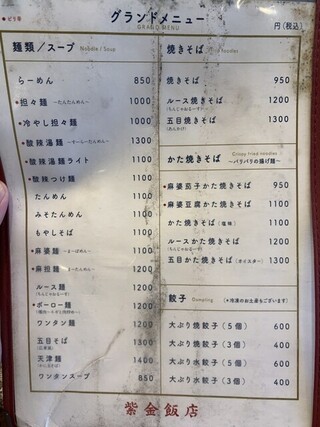 ●ピリ辛
グランドメニュー
GRAND MENU
円(税込)
麺類/スープ Noodle / Soup
らーめん 850
●担々麺 ～たんたんめん～ 1000
●冷やし担々麺 1000
●酸辣湯麺 ～すーらーたんめん～ 1300
●酸辣湯麺ライト 1100
●酸辣つけ麺 1100
たんめん 1100
みそたんめん 1100
もやしそば 1100
●麻婆麺 ～まーぼーめん～ 1200
●麻担麺 ～まーたんめん～ 1200
ルース麺 1200
(ちんじゃおるーす)
●ポーロー麺 1200
ワンタン麺 1200
五目そば 1300
(広東麺)
天津麺 1400
(かに玉そば)
ワンタンスープ 850
焼きそば
焼きそば 950
ルース焼きそば 1200
(ちんじゃおるーす)
五目焼きそば 1300
(あんかけ)
かた焼きそば Crispy fried noodles
～パリパリの揚げ麺～
●麻婆茄子かた焼きそば 950
●麻婆豆腐かた焼きそば 1100
かた焼きそば (塩味) 1100
ルースかた焼きそば 1200
(ちんじゃおるーす)
五目かた焼きそば (オイスター) 1300
餃子 Dumpling (●冷凍のお土産もございます)
大ぶり焼餃子(5個) 600
大ぶり焼餃子(3個) 400
大ぶり水餃子(5個) 600
大ぶり水餃子(3個) 400
紫金飯店